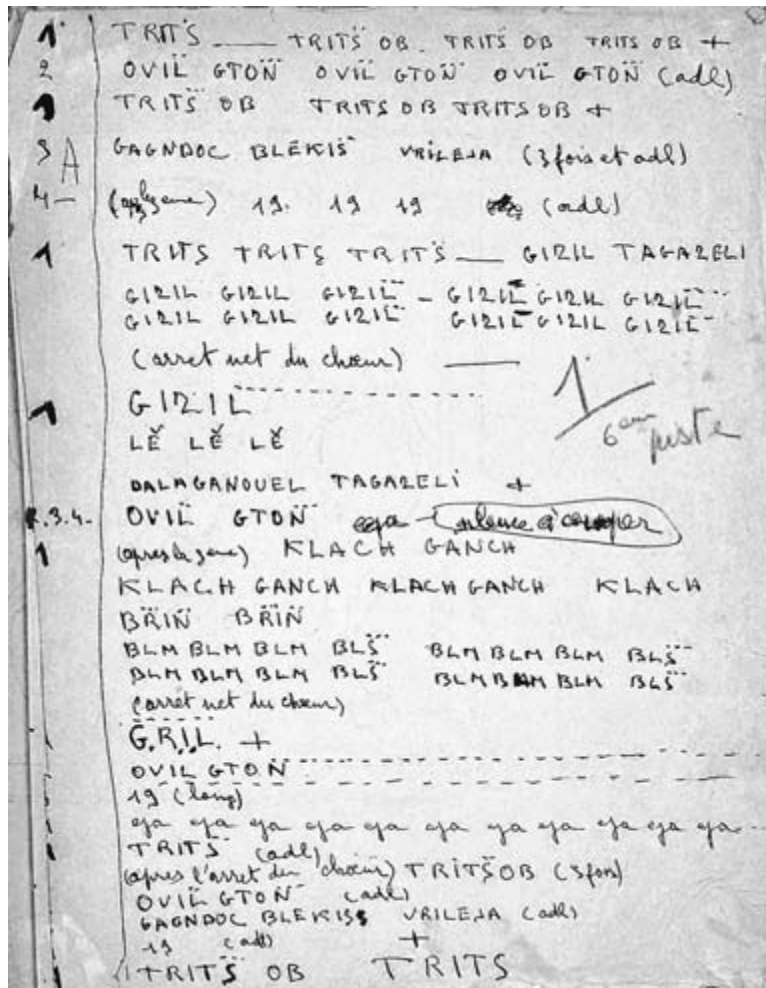 1 TRITS — TRITS̈ OB. TRITS̈ OB TRITS OB +
2 OVIL GTON̈ OVIL GTON̈ OVIL GTON̈ (adl)
1 TRITS̈ OB TRITS OB TRITS OB +
3 A GAGNDOC BLEKIS̈ VRILEJA (3 fois et adl)
4 — 19. 19 19 (adl)
1 TRITS TRITS TRITS̈ — GIZIL TAGAZELI
GIZIL GIZIL GIZIL̈ – GIZIL GIZIL GIZIL̈
GIZIL GIZIL GIZIL̈ GIZIL GIZIL GIZIL̈
(arret net du chœur) —
1 GIZIL - - - - - - - -
LĔ LĔ LĔ
1/6em piste
DALAGANOUEL TAGAZELI +
2.3.4.- OVIL GTON̈ eya – à couper
1 KLACH GANCH
KLACH GANCH KLACH GANCH KLACH
BR̈IN̈ BR̈IN̈
BLM BLM BLM BLS̈ BLM BLM BLM BLS̈
BLM BLM BLM BLS̈ BLM BLM BLM BLS̈
(arrêt net du chœur)
G.R.I.L. +
OVIL GTON̈ - - - - - - - -
19 (long)
eya eya eya eya eya eya eya eya eya eya eya
TRITS (adl)
(apres l'arret du chœur) TRITS̈ OB (3 fois)
OVIL GTON̈ (adl)
GAGNDOC BLEKISS VRILEJA (adl)
19 (adl) +
TRITS̈ OB TRITS